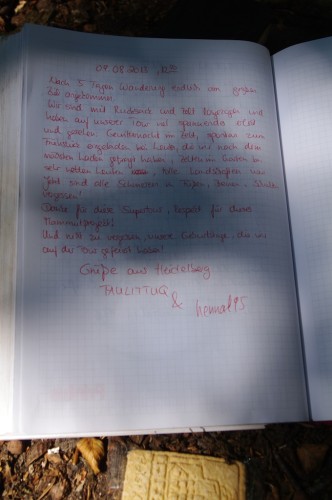 09.08.2015
Nach 5 Tagen Wanderung endlich am großen
Ziel angekommen!
Wir sind mit Rucksack und Zelt losgezogen und
haben auf unserer Tour viel spannendes erlebt
und gesehen. Gewitternacht im Zelt, spontan zum
Frühstück eingeladen bei Leuten, die wir nach dem
nächsten Laden gefragt haben, Zelten im Garten bei
sehr netten Leuten, tolle Landschaften uvm.
Jetzt sind alle Schmerzen in Füßen, Beinen, Schultern
vergessen!
Danke für diese Supertour, Respekt für dieses
Hammerprojekt!
Und nicht zu vergessen, unsere Geburtstage, die wir
auf der Tour gefeiert haben!
Grüße aus Heidelberg
TAULITTUQ
&
hennal95